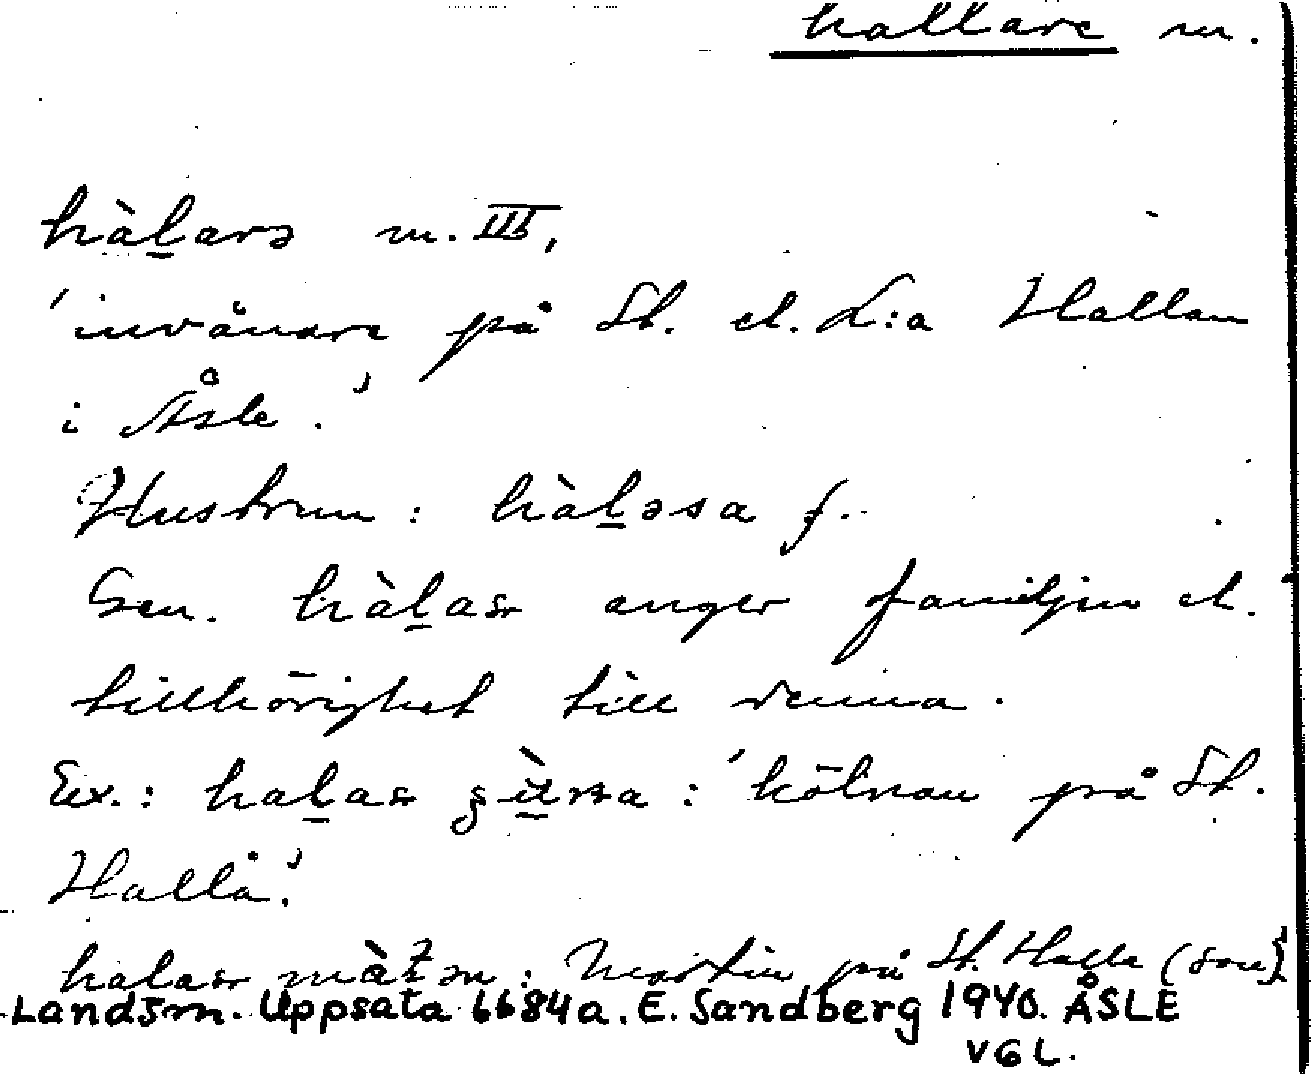 hallare m.
hàl̲arə m. III,
'invånare på St. el. L:a Hallan
i Åsle.'
Hustrun: hàl̲əsa f.
Gen. hàl̲as anger familjen el.
tillhörighet till denna.
Ex.: hal̲as : 'kölnan på St.
Hallå.'
halas : Martin på St. Halla (son)
Landsm. Uppsala 6684a. E. Sandberg 1940. ÅSLE
VGL.